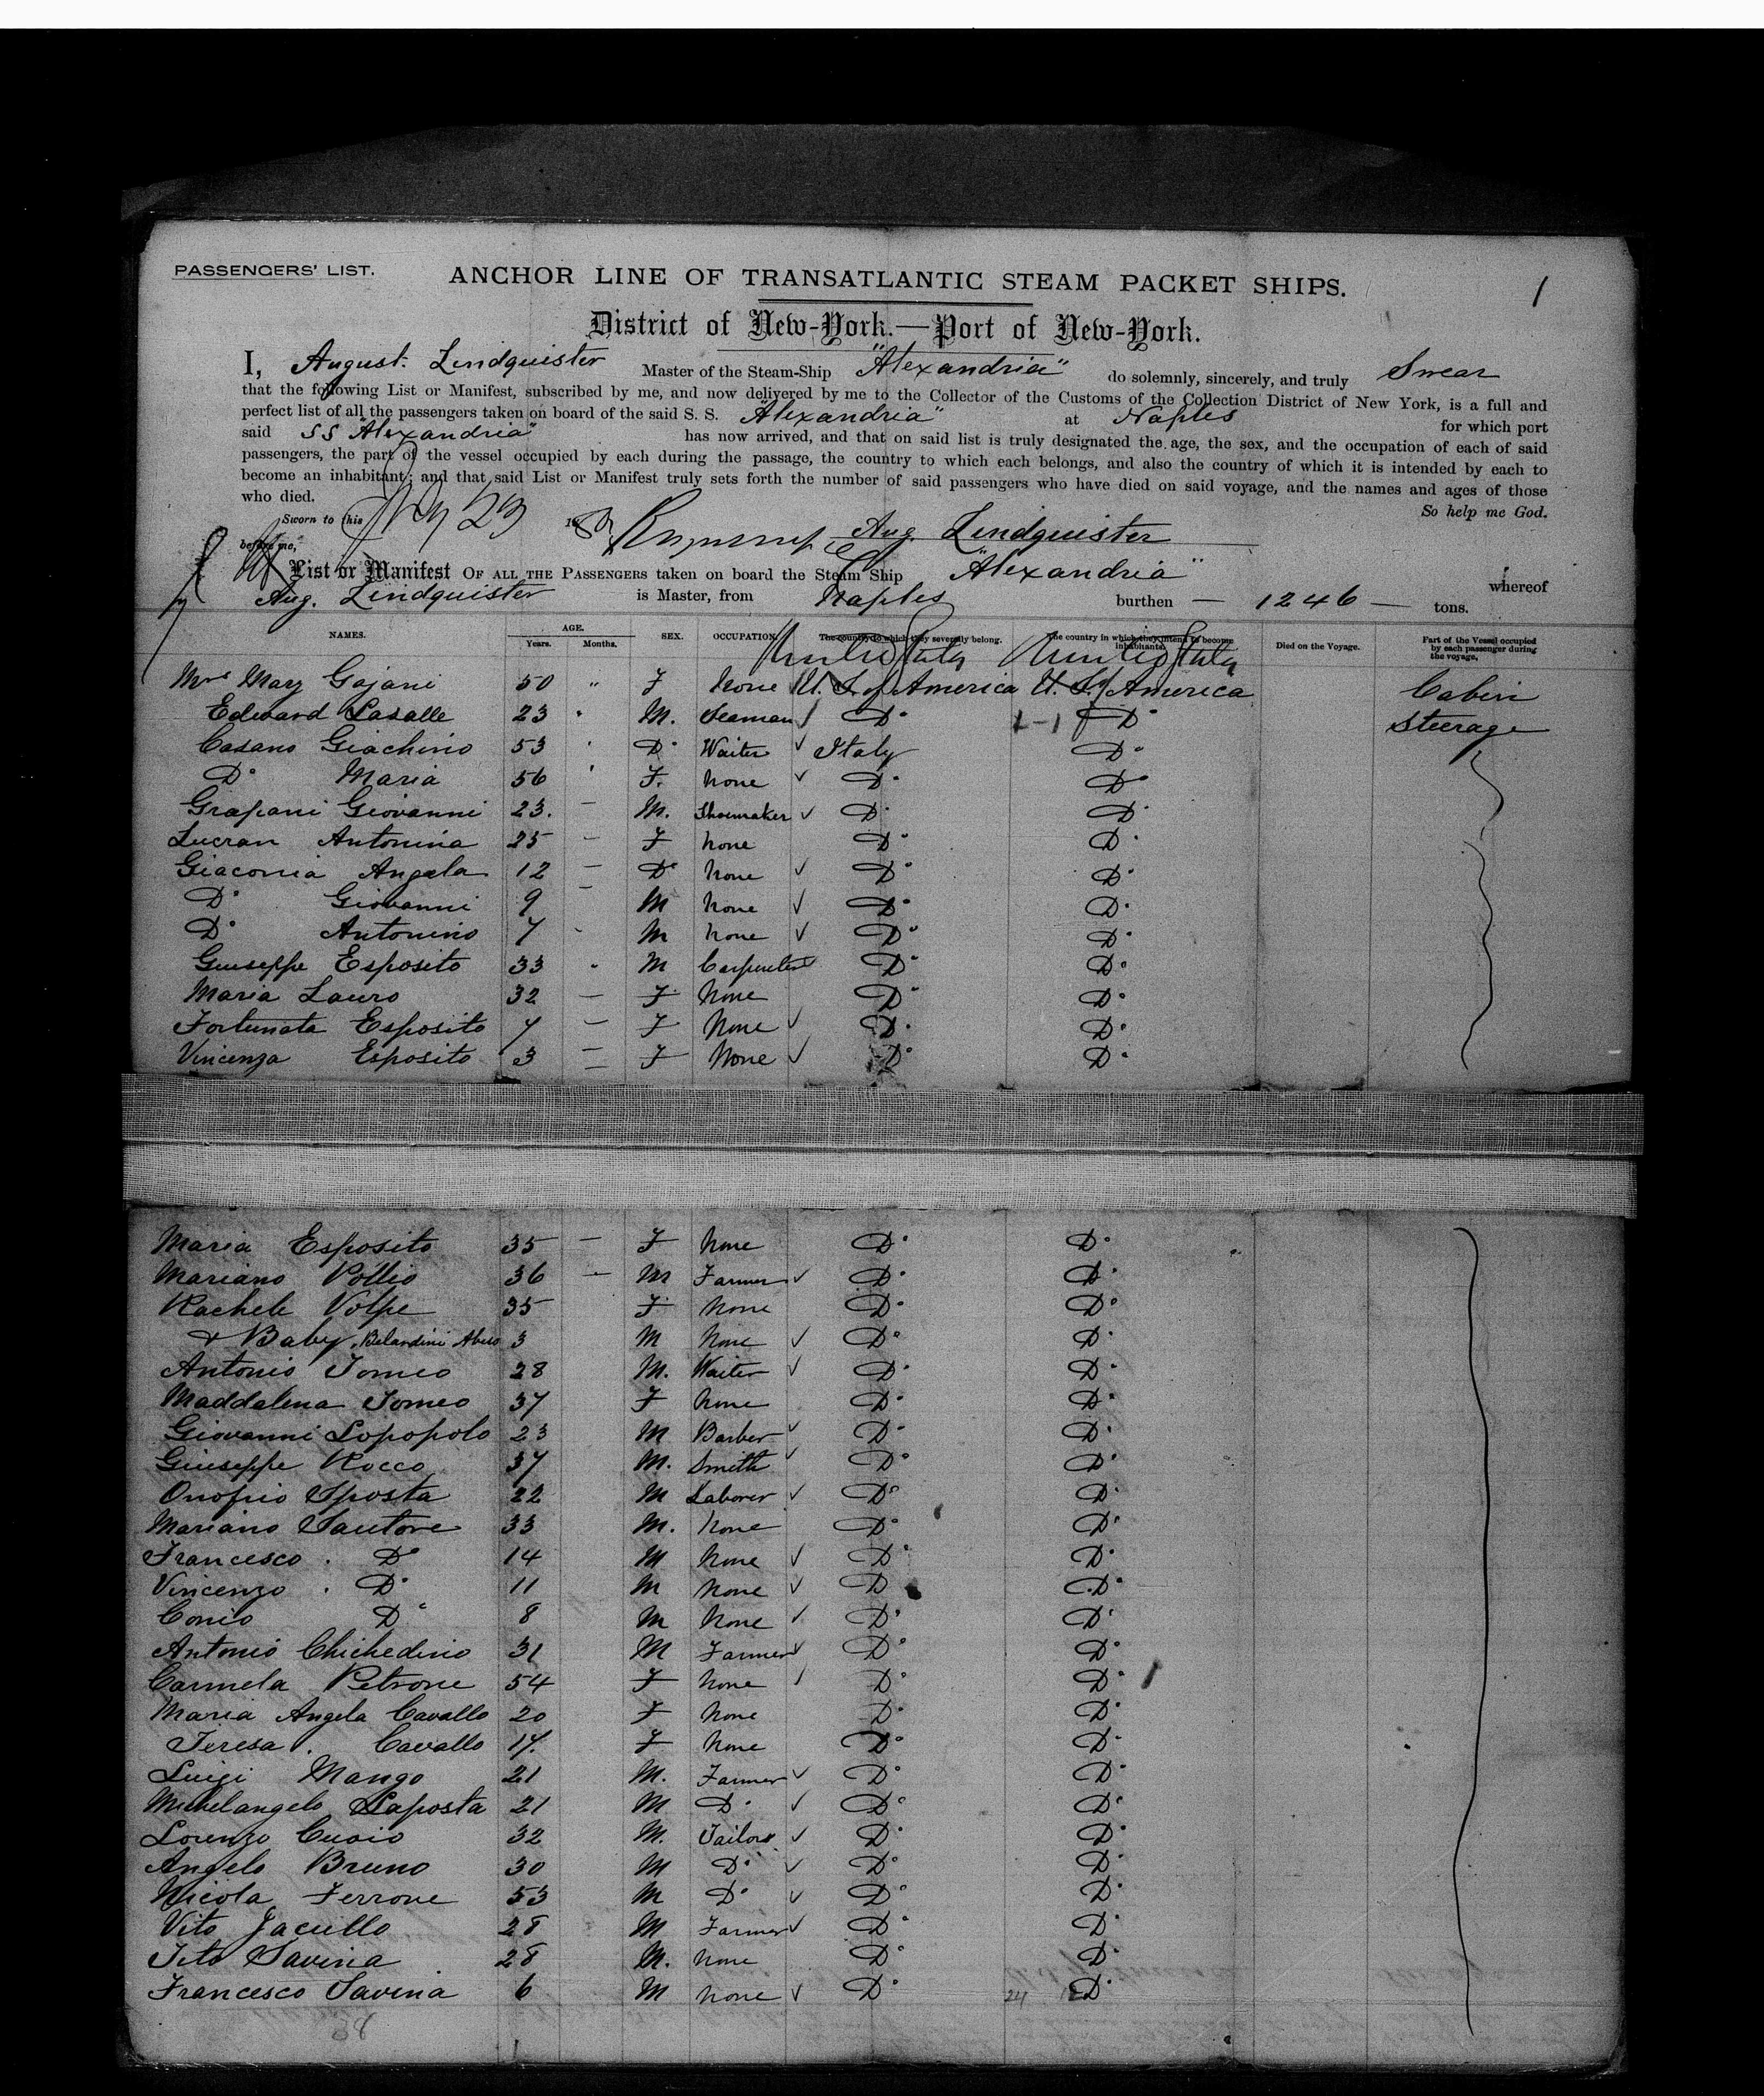 PASSENGERS' LIST.
ANCHOR LINE OF TRANSATLANTIC STEAM PACKET SHIPS.
1
District of New-York.—Port of New-York.
I, August. Lindquister Master of the Steam-Ship "Alexandria" do solemnly, sincerely, and truly Swear
that the following List or Manifest, subscribed by me, and now delivered by me to the Collector of the Customs of the Collection District of New York, is a full and
perfect list of all the passengers taken on board of the said S. S. "Alexandria" at Naples for which port
said SS "Alexandria" has now arrived, and that on said list is truly designated the age, the sex, and the occupation of each of said
passengers, the part of the vessel occupied by each during the passage, the country to which each belongs, and also the country of which it is intended by each to
become an inhabitant; and that said List or Manifest truly sets forth the number of said passengers who have died on said voyage, and the names and ages of those
who died. So help me God.
Sworn to this 23 18 Aug. Lindquister
before me,
List or Manifest OF ALL THE PASSENGERS taken on board the Steam Ship "Alexandria" whereof
Aug. Lindquister is Master, from Naples burthen — 1246 — tons.
NAMES. AGE. Years. Months. SEX. OCCUPATION. The country to which they severally belong. The country in which they intend to become inhabitants. Died on the Voyage. Part of the Vessel occupied by each passenger during the voyage,
United States United States
Mrs Mary Gajani 50 " F None U. S. of America U. S. of America Cabin
Edward Lasalle 23 M. Seaman Do Do Steerage
Casano Giachino 53 Do Waiter ✓ Italy Do
Do Maria 56 F. None ✓ Do Do
Grapani Giovanni 23. — M. Shoemaker ✓ Do Do
Lucran Antonina 25 — F None Do Do
Giaconia Angela 12 — Do None ✓ Do Do
Do Giovanni 9 — M None ✓ Do Do
Do Antonino 7 - M None ✓ Do Do
Giuseppe Esposito 33 M Carpenter Do Do
Maria Lauro 32 — F None Do Do
Fortunata Esposito 7 — F None ✓ Do Do
Vincenza Esposito 3 — F None ✓ Do Do
Maria Esposito 35 — F None Do Do
Mariano Pollio 36 — M Farmer ✓ Do Do
Rachele Volpe 35 F None Do Do
& Baby 3 M None ✓ Do Do
Antonio Tomeo 28 M. Waiter ✓ Do Do
Maddalena Tomeo 37 F None Do Do
Giovanni Lopopolo 23 M Barber ✓ Do Do
Giuseppe Rocco 37 M. Smith ✓ Do Do
Onofrio Sposta 22 M Laborer ✓ Do Do
Mariano Santore 33 M. None Do Do
Francesco . Do 14 M None ✓ Do Do
Vincenzo . Do 11 M None ✓ Do Do
Do 8 M None ✓ Do Do
Antonio Chichedino 31 M Farmer ✓ Do Do
Carmela Petrone 54 F None Do Do
Maria Angela Cavallo 20 F None Do Do
Teresa . Cavallo 17. F None Do Do
Luigi Mango 21 M. Farmer ✓ Do Do
Michelangelo Laposta 21 M Do ✓ Do Do
Lorenzo Cuoio 32 M. Tailor ✓ Do Do
Angelo Bruno 30 M Do ✓ Do Do
Nicola Ferrone 53 M Do ✓ Do Do
Vito Jacullo 28 M Farmer ✓ Do Do
Tito Savina 28 M. None Do Do
Francesco Savina 6 M None ✓ Do Do
24
38